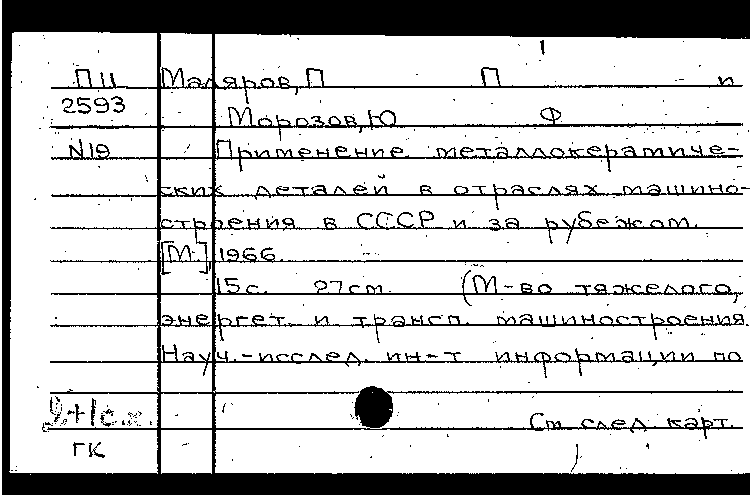 П11 Маляров, П П и
2593 Морозов, Ю Ф
N19 Применение металлокерамиче-
ских деталей в отраслях машино-
строения в СССР и за рубежом.
[М.] 1966.
15с. 27см. (М-во тяжелого,
энергет. и трансп. машиностроения
Науч.-исслед. ин-т информации по
См след карт.
ГК